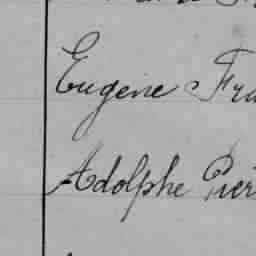 Eugène Fra
Adolphe Pier